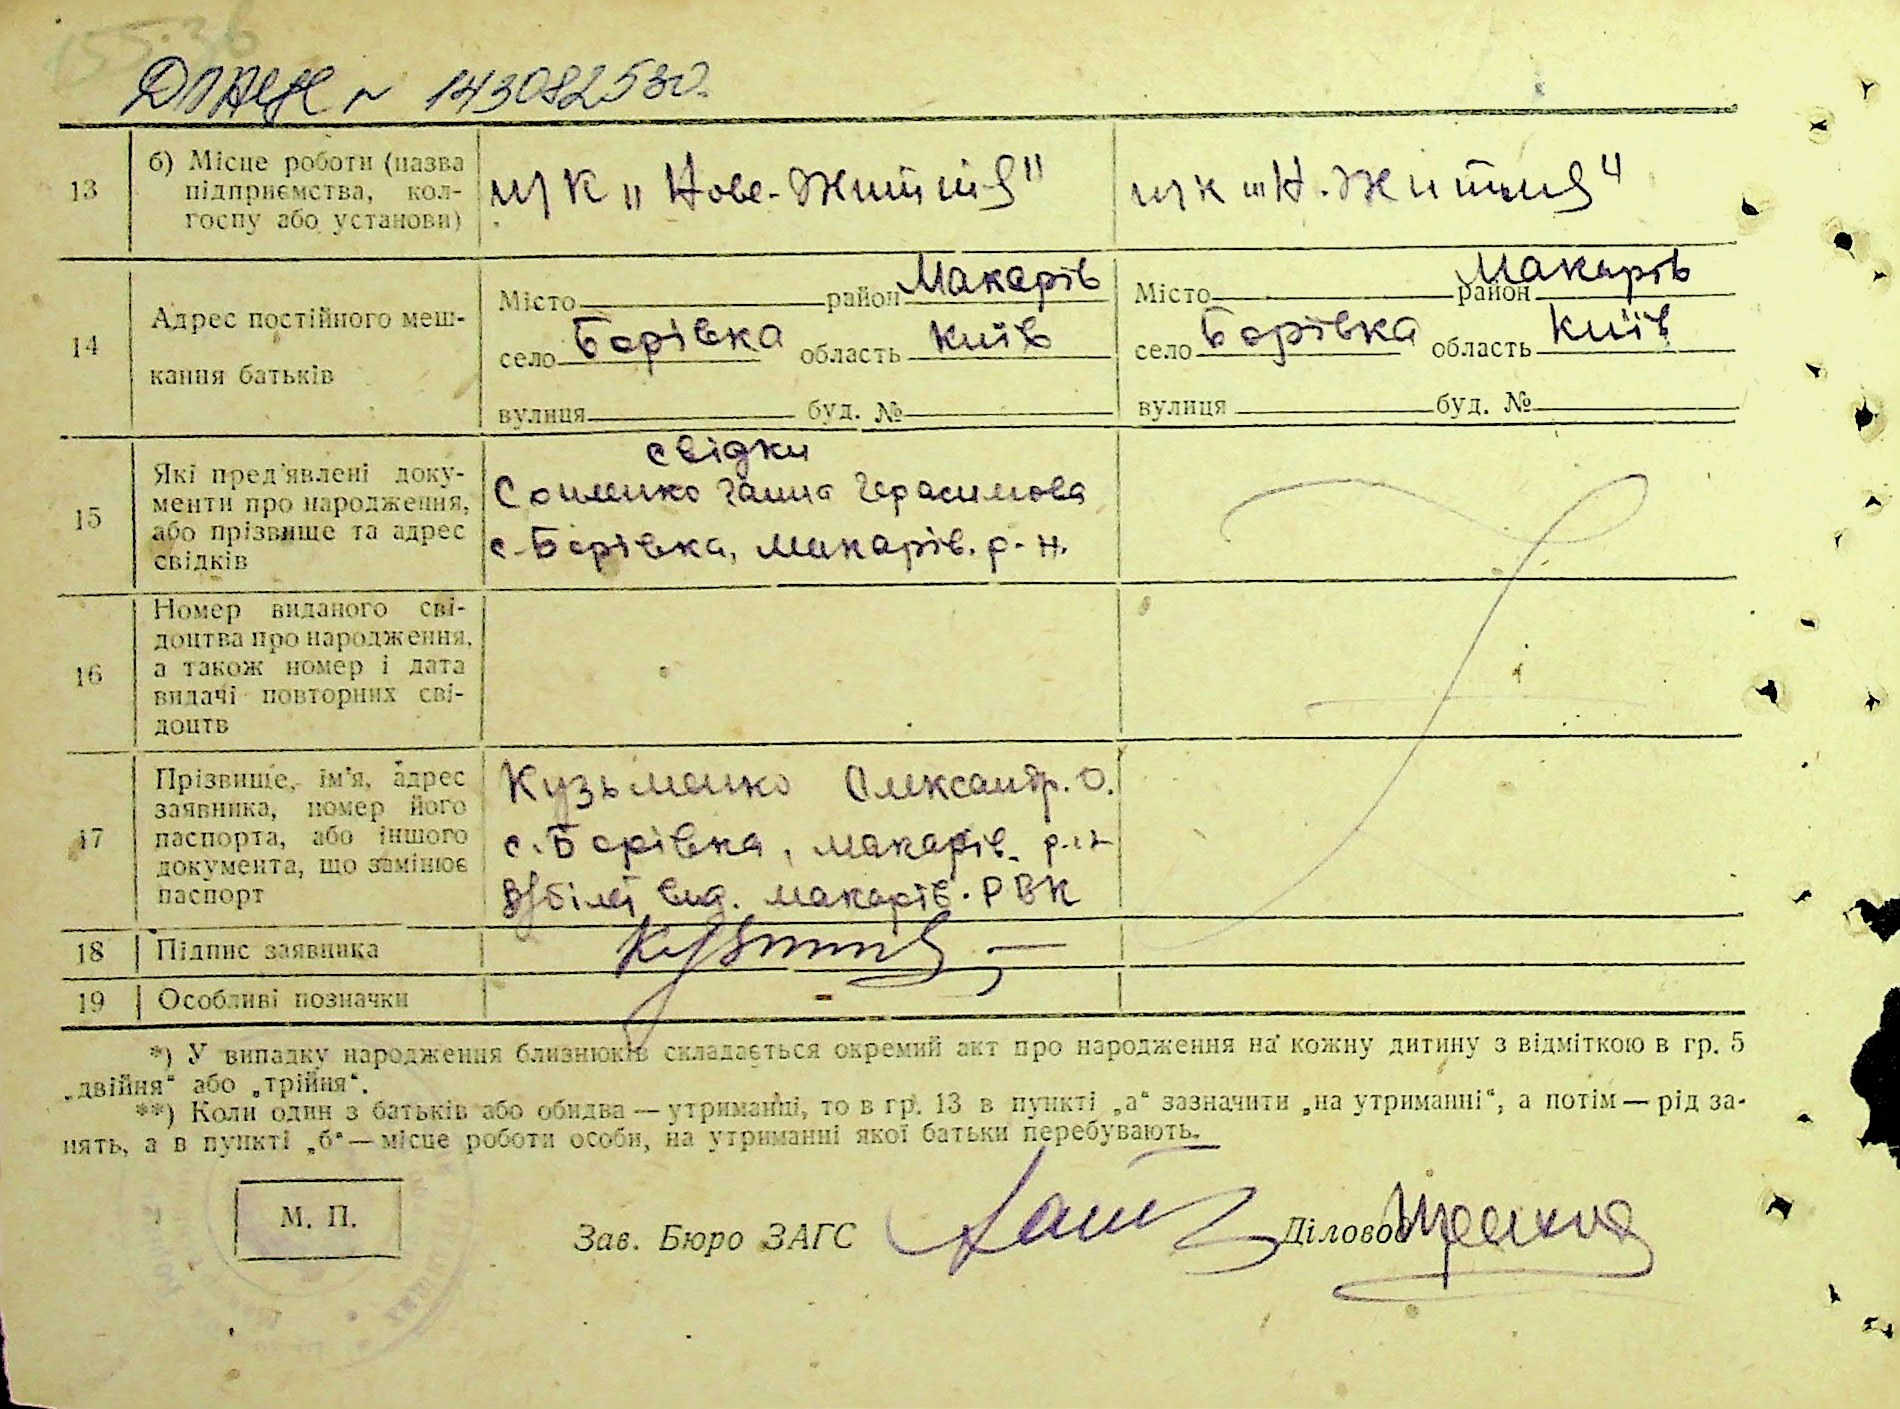 155.36
ДПАЦС № 143082530.
13 б) Місце роботи (назва підприємства, кол-госпу або установи) м/к „Нове-Життія" м/к „Н.Життия"
14 Адрес постійного меш-кання батьків
Місто район Макарів Місто район Макарів
село Борівка область Київ село Борівка область Київ
вулиця буд. № вулиця буд. №
15 Які пред'явлені доку-
менти про народження,
або прізвище та адрес
свідків
свідки
Ганна Герасимова
с. Борівка, Макарів. р-н.
16 Номер виданого сві-
доцтва про народження,
а також номер і дата
видачі повторних сві-
доцтв
17 Прізвище, ім'я, адрес
заявника, номер його
паспорта, або іншого
документа, що замінює
паспорт
Кузьменко Олександр. О.
с. Борівка, Макарів. р-н
В/білет вид. Макарів. РВК
18 Підпис заявника
19 Особливі позначки -
*) У випадку народження близнюків складається окремий акт про народження на кожну дитину з відміткою в гр. 5
„двійня" або „трійня".
**) Коли один з батьків або обидва — утриманні, то в гр. 13 в пункті „а" зазначити „на утриманні", а потім — рід за-
нять, а в пункті „б" — місце роботи особи, на утриманні якої батьки перебувають.
М. П.
Зав. Бюро ЗАГС Діловод